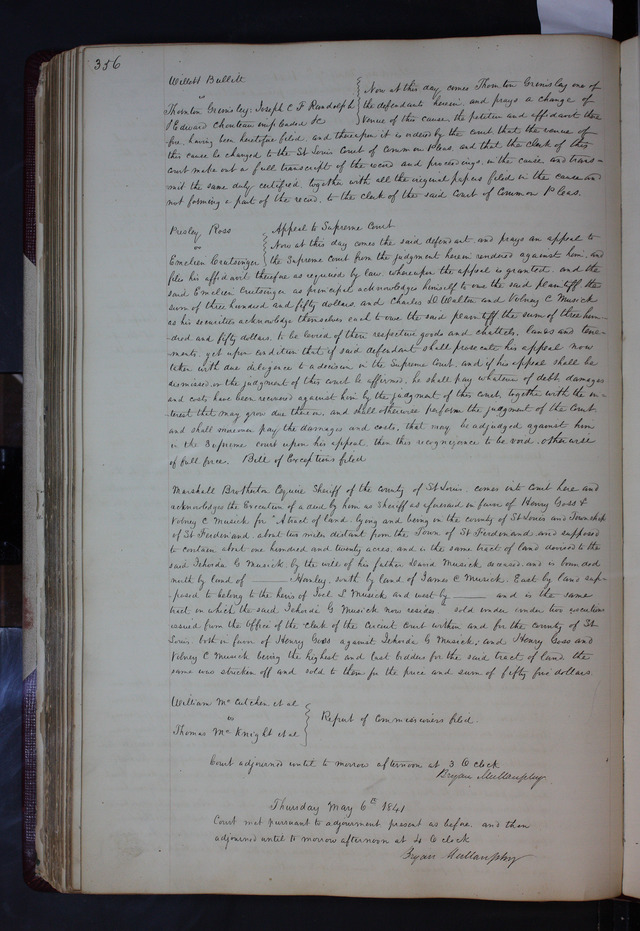 356
Willett Bullitt
vs
Thornton Grimsley, Joseph C. F. Randolph
& Edward Chouteau impleaded &c
Now at this day comes Thornton Grimsley one of
the defendants herein, and prays a change of
venue of this cause, the petition and affidavit there
fore, having been heretofore filed, and thereupon it is ordered by the court that the venue of
this cause be changed to the St Louis Court of Common Pleas, and that the clerk of this
court make out a full transcript of the record and proceedings, in the cause, and trans-
mit the same duly certified, together with all the original papers filed in the cause and
not forming a part of the record, to the clerk of the said Court of Common Pleas.
Presley Ross
vs
Emelien Crutsinger
Appeal to Supreme Court
Now at this day comes the said defendant, and prays an appeal to
the Supreme Court from the judgment herein rendered against him, and
files his affidavit therefor as required by law, whereupon the appeal is granted. and the
said Emelien Crutsinger as principal acknowledges himself to owe the said plaintiff the
sum of three hundred and fifty dollars, and Charles D Walton and Volney C. Musick
as his securities acknowledge themselves each to owe the said plaintiff the sum of three hun-
dred and fifty dollars, to be levied of their respective goods and chattels, lands and tene-
ments, yet upon condition that if said defendant shall prosecute his appeal now
taken with due diligence to a decision in the Supreme Court, and if his appeal shall be
dismissed or the judgment of this court be affirmed, he shall pay whatever of debt, damages
and costs have been recovered against him by the judgment of this Court, together with the in-
terest that may grow due thereon, and shall otherwise perform the judgment of the Court
and shall moreover pay the damages and costs, that may be adjudged against him
in the Supreme court upon his appeal, then this recognizance to be void, otherwise
of full force. Bill of Exceptions filed
Marshall Brotherton Esquire Sheriff of the county of St Louis, comes into Court here and
acknowledges the Execution of a deed by him as Sheriff as aforesaid in favor of Henry Goss &
Volney C. Musick for "A tract of land lying and being in the county of St Louis and Township
of St Ferdinand, about two miles distant from the Town of St Ferdinand, and supposed
to contain about one hundred and twenty acres, and is the same tract of land devised to the
said G Musick, by the will of his father David Musick deceased, and is bounded
north by land of ——— Hanley, south by land of James C Musick, East by land sup-
posed to belong to the heirs of Joel L Musick and west by ——— and is the same
tract on which the said G Musick now resides," sold under two executions
issued from the office of the clerk of the Circuit Court within and for the county of St
Louis, both in favor of Henry Goss against G Musick, and Henry Goss and
Volney C Musick being the highest and last bidders for the said tract of land, the
same was stricken off and sold to them for the price and sum of fifty five dollars.
William McCutchen et al
vs
Thomas McKnight et al
Report of Commissioners filed.
Court adjourned until to morrow afternoon at 3 O clock
Bryan Mullanphy.
Thursday May 6th 1841
Court met pursuant to adjournment present as before, and then
adjourned until to morrow afternoon at 4 O clock
Bryan Mullanphy